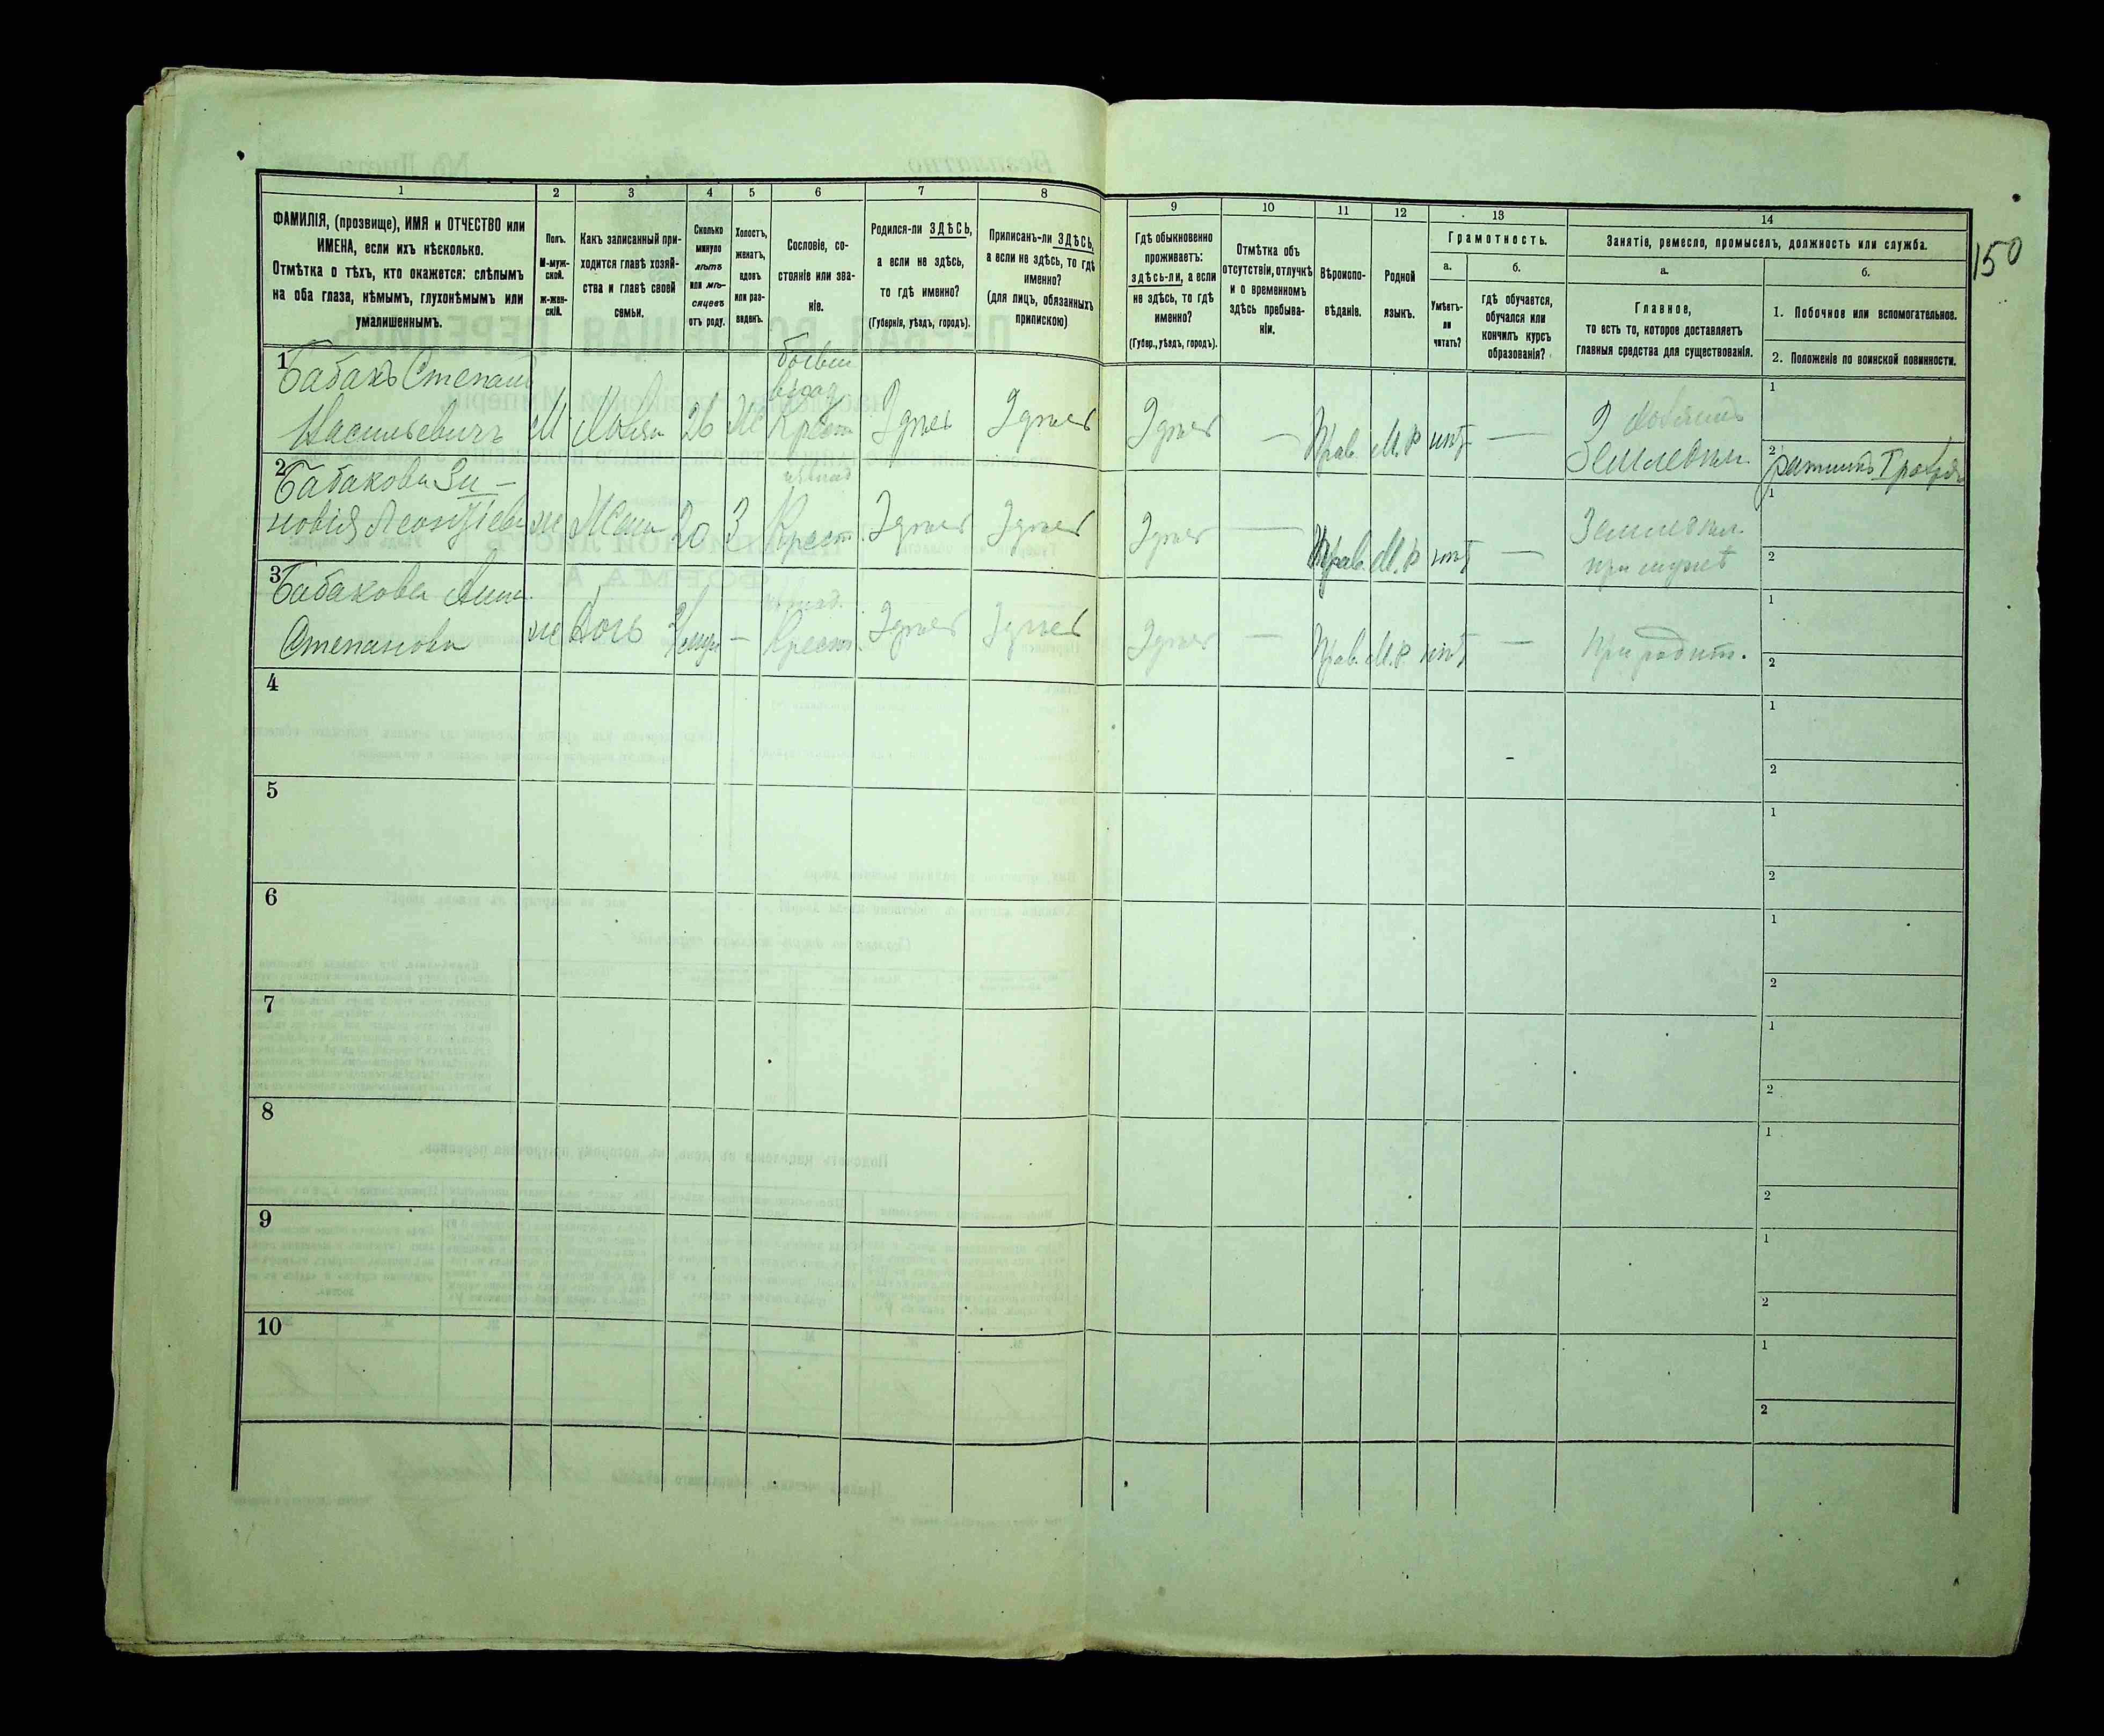 1 2 3 4 5 6 7 8 9 10 11 12 13 14
150
ФАМИЛІЯ, (прозвище), ИМЯ и ОТЧЕСТВО или
ИМЕНА, если ихъ нѣсколько.
Отмѣтка о тѣхъ, кто окажется: слѣпымъ
на оба глаза, нѣмымъ, глухонѣмымъ или
умалишеннымъ.
Полъ.
М-муж-
ской.
Ж-жен-
скій.
Какъ записанный при-
ходится главѣ хозяй-
ства и главѣ своей
семьи.
Сколько
минуло
лѣтъ
или мѣ-
сяцевъ
отъ роду.
Холостъ,
женатъ,
вдовъ
или раз-
веденъ.
Сословіе, со-
стояніе или зва-
ніе.
Родился-ли ЗДѢСЬ,
а если не здѣсь,
то гдѣ именно?
(Губернія, уѣздъ, городъ).
Приписанъ-ли ЗДѢСЬ,
а если не здѣсь, то гдѣ
именно?
(для лицъ, обязанныхъ
припискою)
Гдѣ обыкновенно
проживаетъ:
здѣсь-ли, а если
не здѣсь, то гдѣ
именно?
(Губер., уѣздъ, городъ).
Отмѣтка объ
отсутствіи, отлучкѣ
и о временномъ
здѣсь пребыва-
ніи.
Вѣроиспо-
вѣданіе.
Родной
языкъ.
Грамотность.
а.
Умѣетъ-
ли
читать?
б.
гдѣ обучается,
обучался или
кончилъ курсъ
образованія?
Занятіе, ремесло, промыселъ, должность или служба.
а.
Главное,
то есть то, которое доставляетъ
главныя средства для существованія.
б.
1. Побочное или вспомогательное.
2. Положеніе по воинской повинности.
1
Бабакъ Степанъ
Васильевичъ
М Хозяин 26 Ж Крест Здѣсь Здѣсь Здѣсь — Прав. М.Р нѣт —
Хозяинъ
Землевил.
1
2 ратникъ
2
Бабакова Зи-
новія Леонтіева
ж Жена 20 З Крест. Здѣсь Здѣсь Здѣсь — Прав. М.Р нѣт —
Землевил.
при мужѣ
1
2
3
Бабакова Анна
Степанова
ж Дочь — Крест. Здѣсь Здѣсь Здѣсь — Прав. М.Р. нѣт —
При родит.
1
2
4
1
2
5
1
2
6
1
2
7
1
2
8
1
2
9
1
2
10
1
2